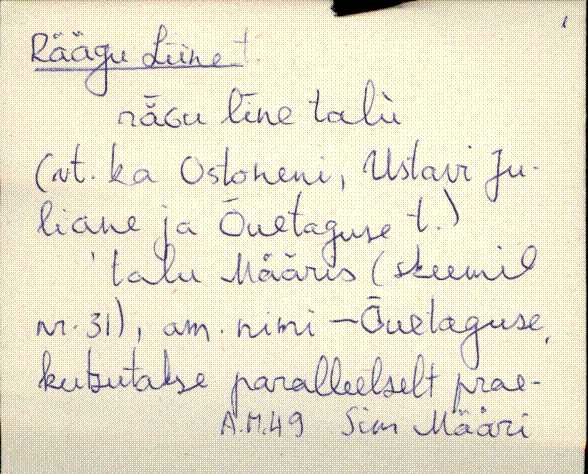 Räägu Liine t.
räɢu līne talù
(vt. ka Ostoneni, Ustavi Ju-
liane ja Õuetaguse t.)
'talu Määris (skeemil
nr. 31), am. nimi – Õuetaguse,
kutsutakse paralleelselt prae-
A.M.49 Sim Määri